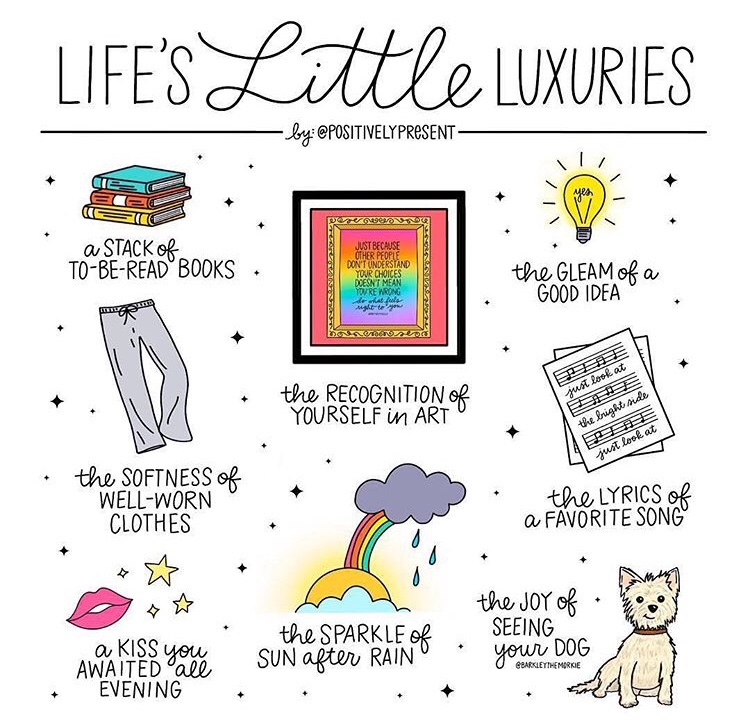 LIFE'S Little LUXURIES
by: @POSITIVELYPRESENT
a STACK of
TO-BE-READ BOOKS
JUST BECAUSE
OTHER PEOPLE
DON'T UNDERSTAND
YOUR CHOICES
DOESN'T MEAN
YOU'RE WRONG
do what feels
right to you
the RECOGNITION of
YOURSELF in ART
yes
the GLEAM of a
GOOD IDEA
the SOFTNESS of
WELL-WORN
CLOTHES
just look at
the bright side
just look at
the LYRICS of
a FAVORITE SONG
a KISS you
AWAITED all
EVENING
the SPARKLE of
SUN after RAIN
the JOY of
SEEING
your DOG
@BARKLEYTHEMORKIE